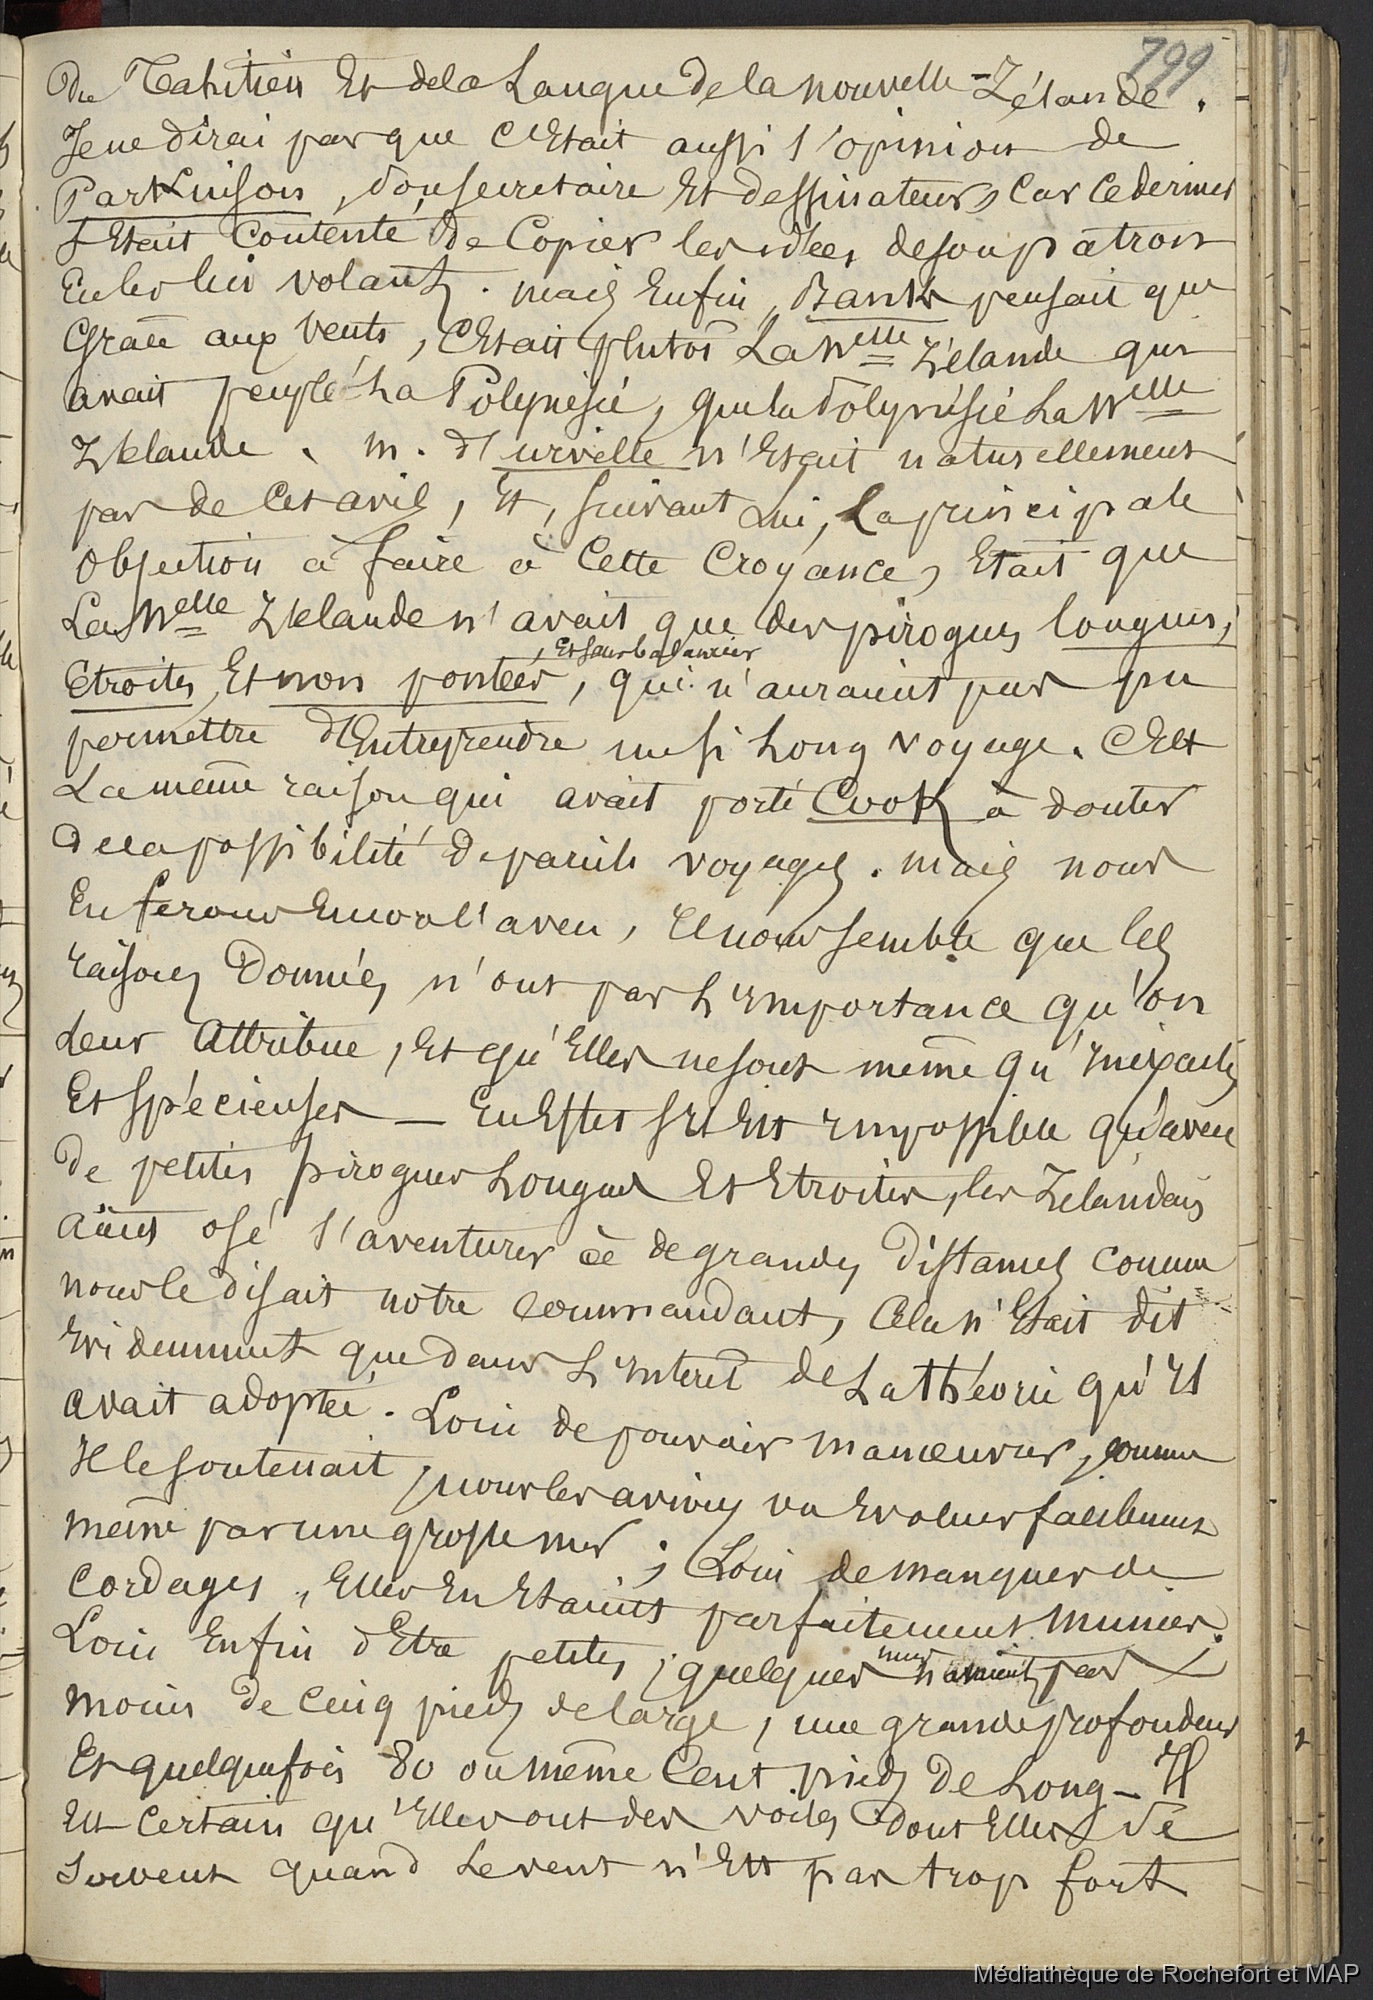 799
Du Tahitien Et de la Langue de la nouvelle-Zélande.
Je ne dirai pas que C'Etait aussi l'opinion de
Parkinson, son secretaire Et dessinateur, Car Ce dernier
s'Etait Contenté de Copier les idées de son patron
En les lui volant. mais Enfin, Banks pensait que
Grace aux Vents, C'Etait plutot La Nelle Zélande qui
avait peuplé La Polynésie, que la Polynésie La Nelle
Zélande. M. d'Urville n'Etait naturellement
pas de Cet avis, Et, suivant Lui, La principale
Objection à faire à Cette Croyance, Etait que
La Nelle Zélande n'avait que des pirogues longues,
, Et sans balancier
Etroites, Et non pontées, qui n'auraient pas pu
permettre d'Entreprendre un si Long voyage. C'Est
La même raison qui avait porté Cook à douter
De la possibilité de pareils voyages. Mais nous
En ferons Encor l'aveu, Il nous semble que les
raisons Données, n'ont pas L'Importance qu'on
Leur Attribue, Et qu'Elles ne sont même qu'Inexactes
Et Spécieuses — En Effet s'Il Est Impossible qu'avec
De petites pirogues Longues Et Etroites, les Zélandais
Aient osé s'aventurer à de grandes Distances Comme
nous le disait notre Commandant, Cela n'Etait dit
Evidemment que dans L'Interet de La théorie qu'Il
avait adoptée. Loin de pouvoir Manœuvrer, comme
Il le soutenait, nous les avions vu Evoluer facilement
même par une grosse mer ; Loin de manquer de
Cordages, Elles En Etaient parfaitement Munies.
Loin Enfin d'Etre petites, quelques unes n'avaient pas
moins de Cinq pieds de large, une grande profondeur
Et quelquefois 80 ou même Cent pieds De Long — Il
Est Certain qu'Elles ont des voiles dont Elles se
servent quand Le vent n'Est pas trop fort
Médiathèque de Rochefort et MAP